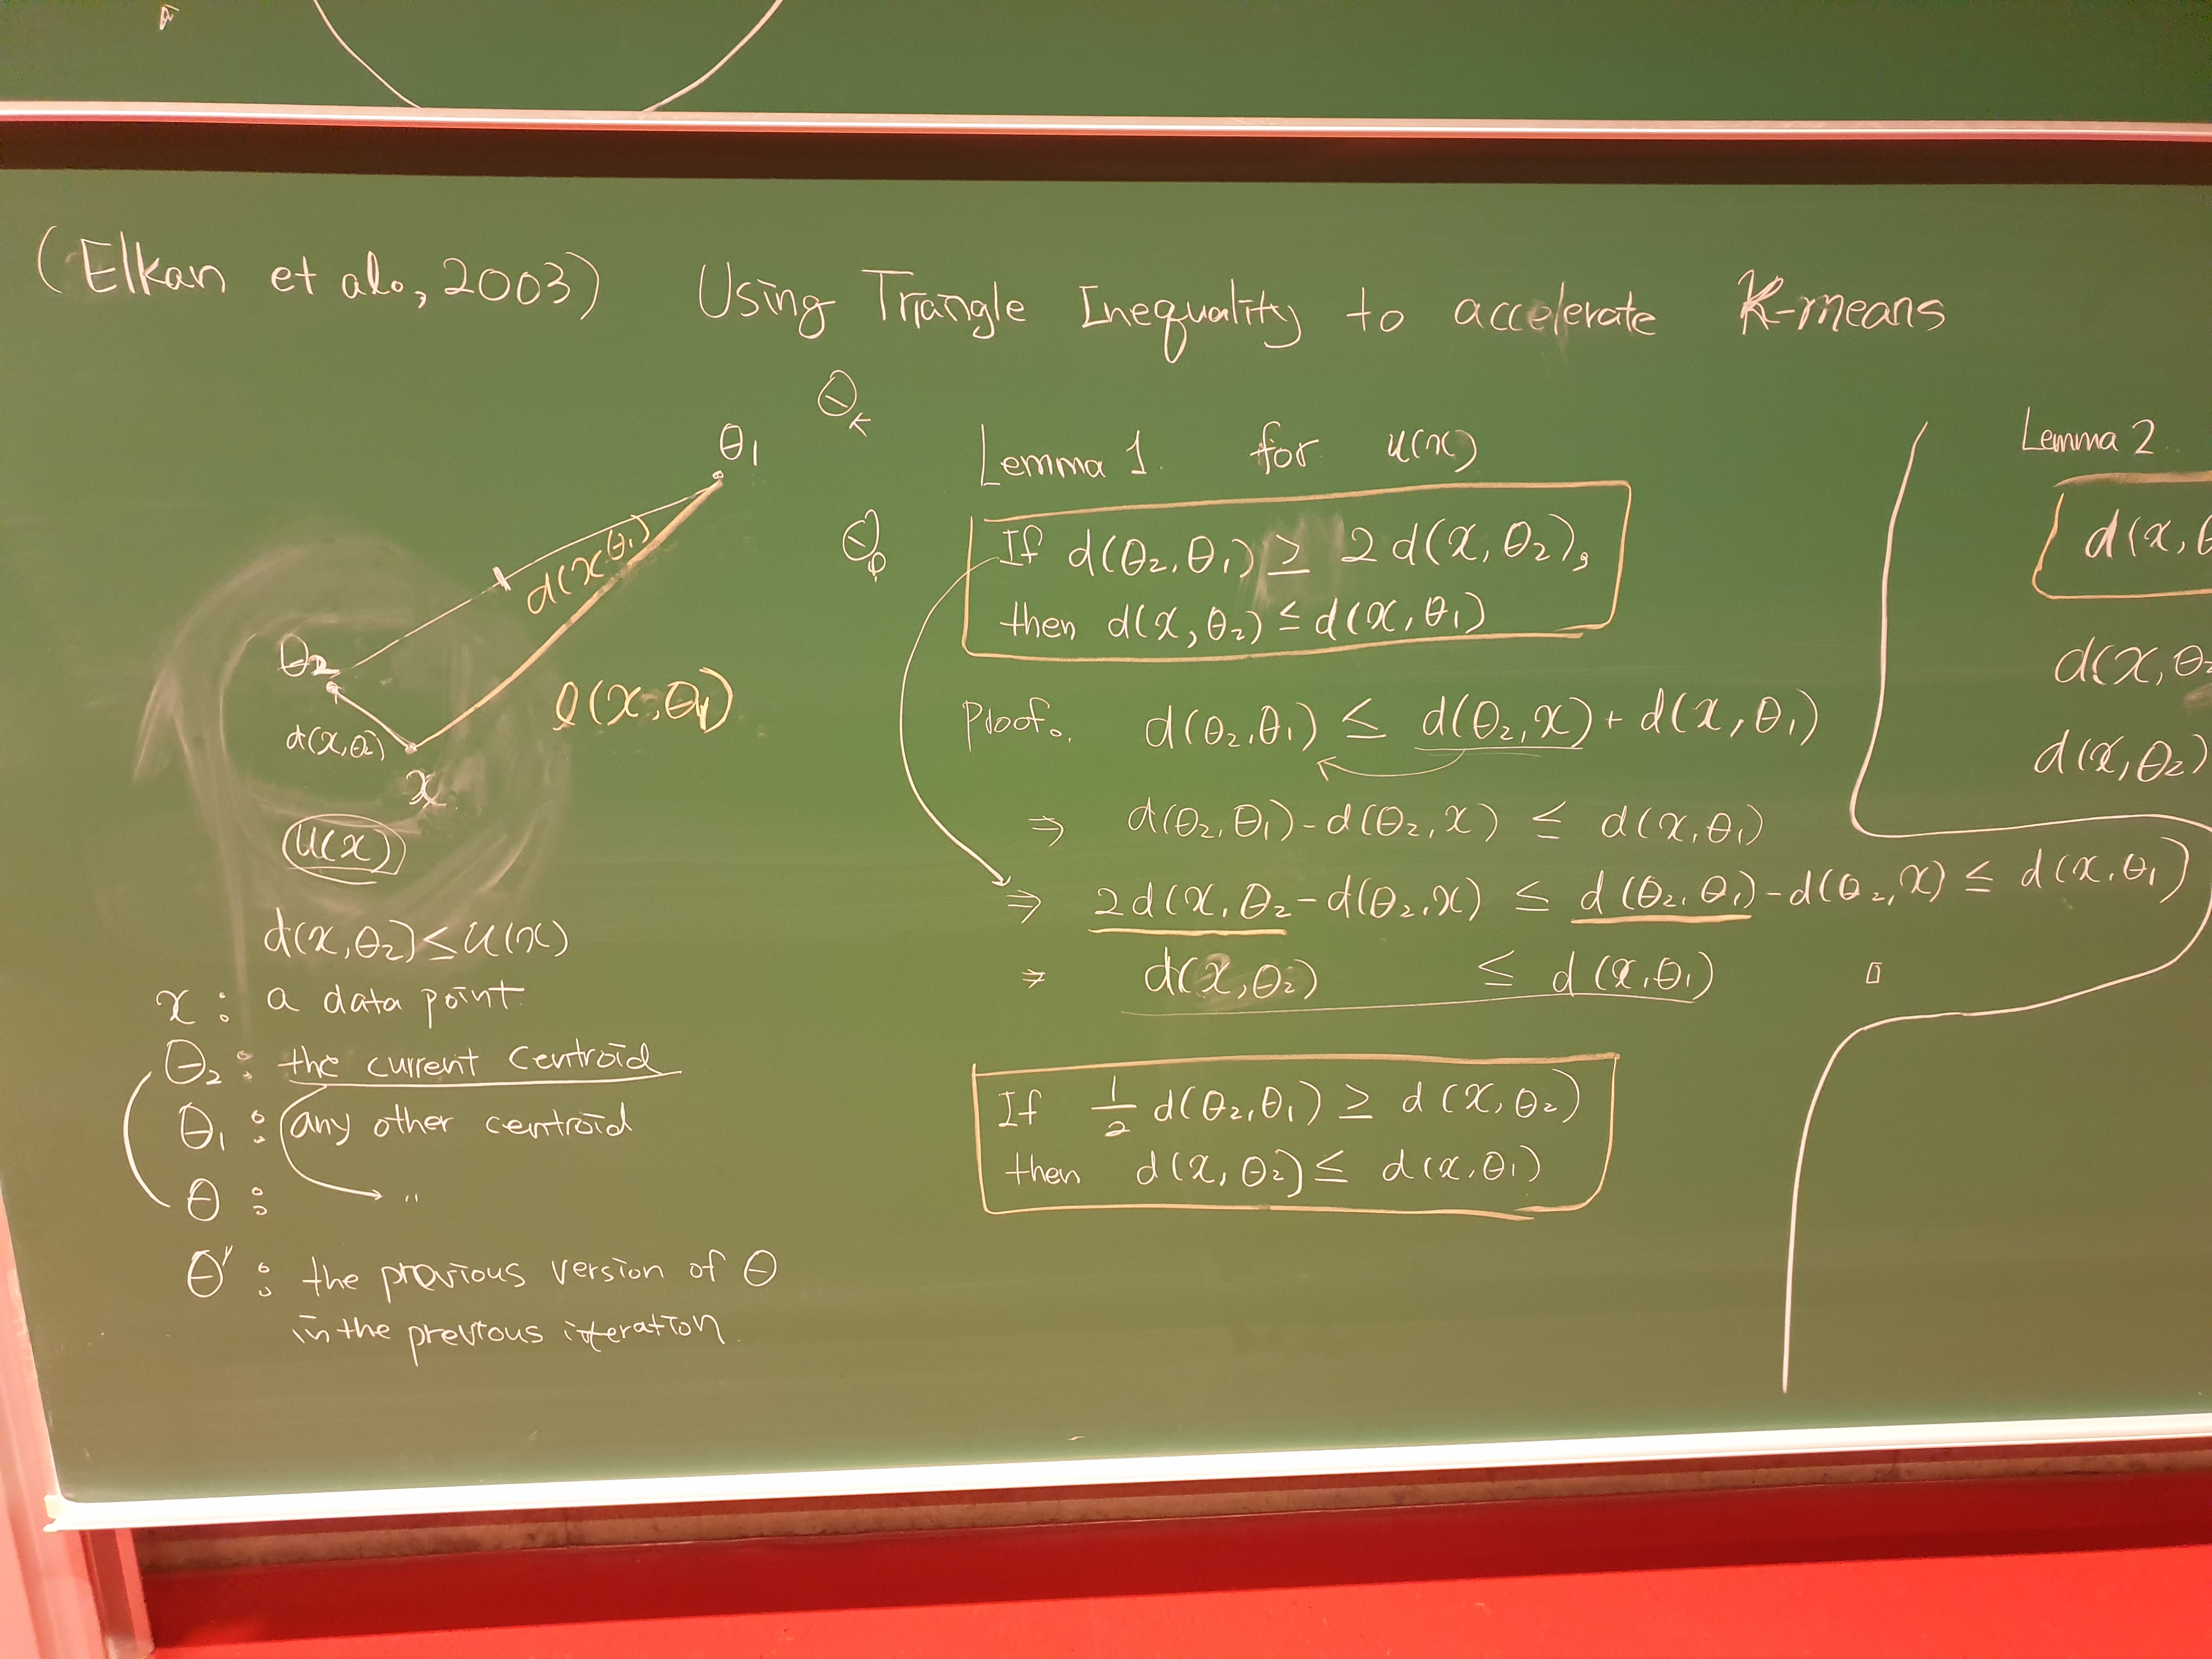 (Elkan et al., 2003) Using Triangle Inequality to accelerate K-means
θ_K
θ₁
d(x,θ₁)
θ₂
l(x,θ₁)
d(x,θ₂)
x
u(x)
d(x,θ₂) ≤ u(x)
x : a data point
θ₂ : the current centroid
θ₁ : any other centroid
θ : → "
θ' : the previous version of θ
in the previous iteration.
Lemma 1. for u(x)
If d(θ₂,θ₁) ≥ 2d(x,θ₂),
then d(x,θ₂) ≤ d(x,θ₁)
Proof. d(θ₂,θ₁) ≤ d(θ₂,x) + d(x,θ₁)
⇒ d(θ₂,θ₁) - d(θ₂,x) ≤ d(x,θ₁)
⇒ 2d(x,θ₂ - d(θ₂,x) ≤ d(θ₂,θ₁) - d(θ₂,x) ≤ d(x,θ₁)
⇒ d(x,θ₂) ≤ d(x,θ₁) □
If 1/2 d(θ₂,θ₁) ≥ d(x,θ₂)
then d(x,θ₂) ≤ d(x,θ₁)
Lemma 2.
d(x,θ
d(x,θ₂
d(x,θ₂)